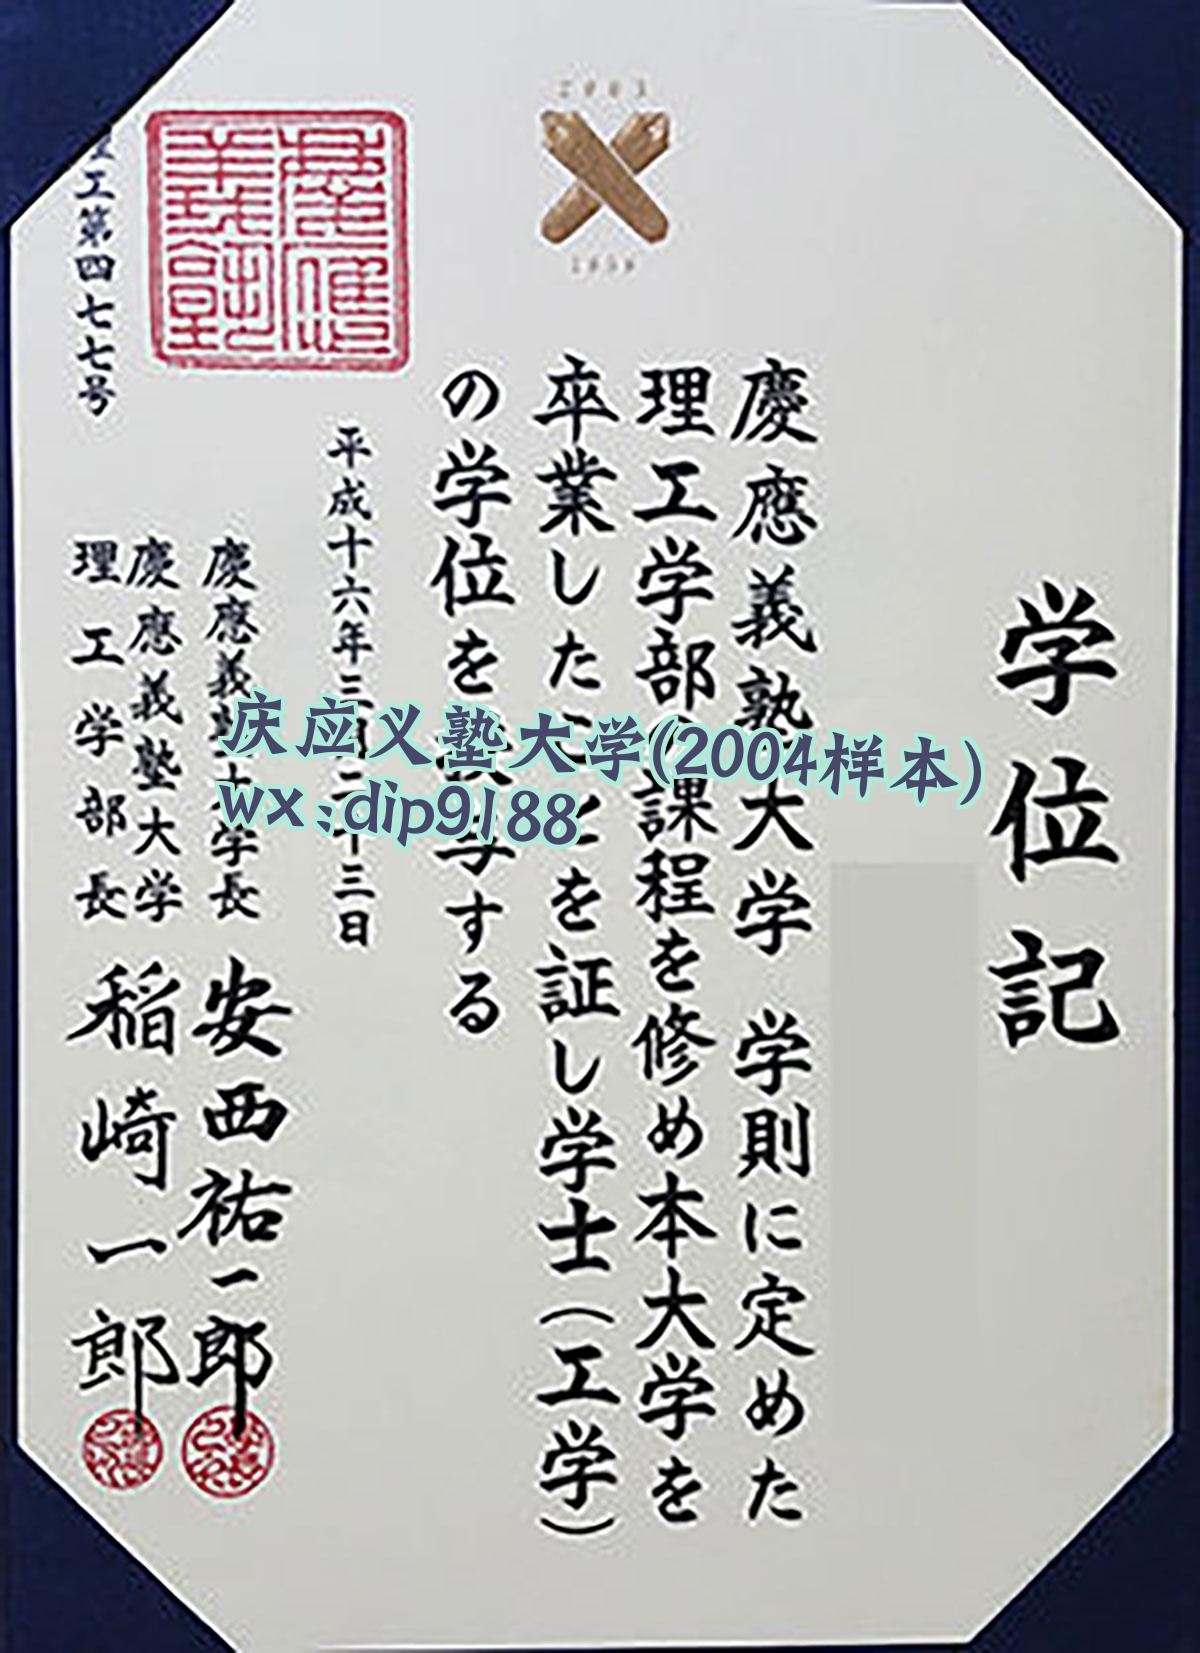 学位記
慶應義塾大学 学則に定めた
理工学部の課程を修め本大学を
卒業したことを証し学士(工学)
の学位を授与する
平成十六年三月二十三日
慶應義塾大学長 安西祐一郎
慶應義塾大学
理工学部長 稲崎一郎
工第四七七号
慶應義塾
庆应义塾大学(2004样本)
wx:dip9188